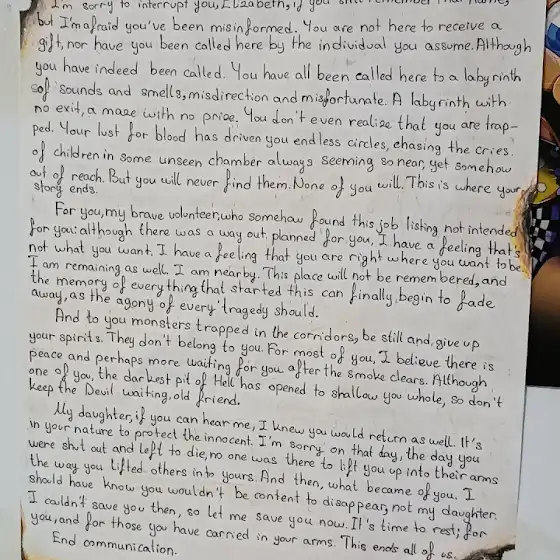 I'm sorry to interrupt you, Elizabeth, if you still remember that name,
but I'm afraid you've been misinformed. You are not here to receive a
gift, nor have you been called here by the individual you assume. Although
you have indeed been called. You have all been called here to a labyrinth
of sounds and smells, misdirection and misfortunate. A labyrinth with
no exit, a maze with no prize. You don't even realize that you are trap-
ped. Your lust for blood has driven you endless circles, chasing the cries.
of children in some unseen chamber always seeming so near, yet somehow
out of reach. But you will never find them. None of you will. This is where your
story ends.
For you, my brave volunteer, who somehow found this job listing not intended
for you: although there was a way out planned for you, I have a feeling that's
not what you want. I have a feeling that you are right where you want to be.
I am remaining as well. I am nearby. This place will not be remembered, and
the memory of everything that started this can finally begin to fade
away, as the agony of every tragedy should.
And to you monsters trapped in the corridors, be still and give up
your spirits. They don't belong to you. For most of you, I believe there is
peace and perhaps more waiting for you after the smoke clears. Although,
one of you, the darkest pit of Hell has opened to shallow you whole, so don't
keep the Devil waiting, old friend.
My daughter, if you can hear me, I knew you would return as well. It's
in your nature to protect the innocent. I'm sorry on that day, the day you
were shut out and left to die, no one was there to lift you up into their arms
the way you lifted others into yours. And then, what became of you. I
should have know you wouldn't be content to disappear, not my daughter.
I couldn't save you then, so let me save you now. It's time to rest; for
you, and for those you have carried in your arms. This ends all of us.
End communication.